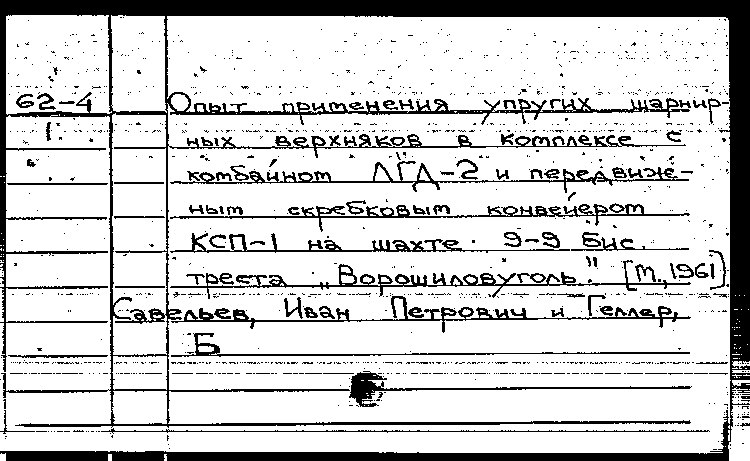 62-4 Опыт применения упругих шарнир-
1. ных верхняков в комплексе с
комбайном ЛГД-2 и передвиже-
ным скребковым конвейером
КСП-1 на шахте 9-9 бис
треста „Ворошиловуголь." [М., 1961]
Савельев, Иван Петрович и Геллер,
Б